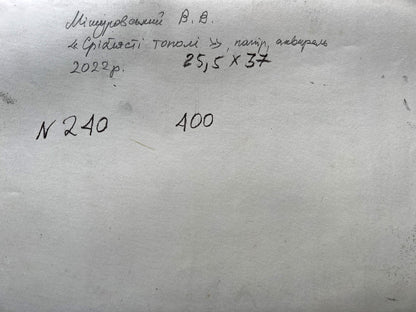 Мішуровський В.В.
«Сріблясті тополі», папір, акварель
2022р. 25,5 х 37
N 240 400